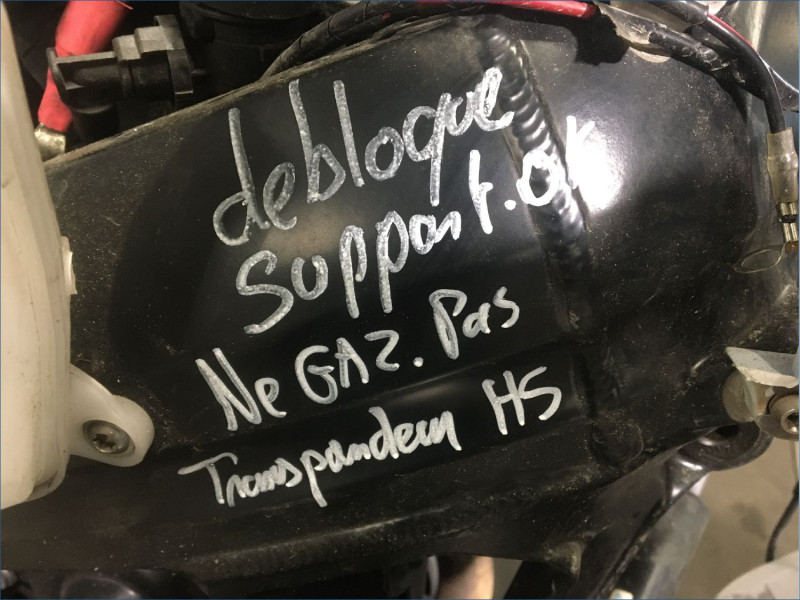 debloque
support.OK
Ne GAZ. Pas
Transpondeur HS